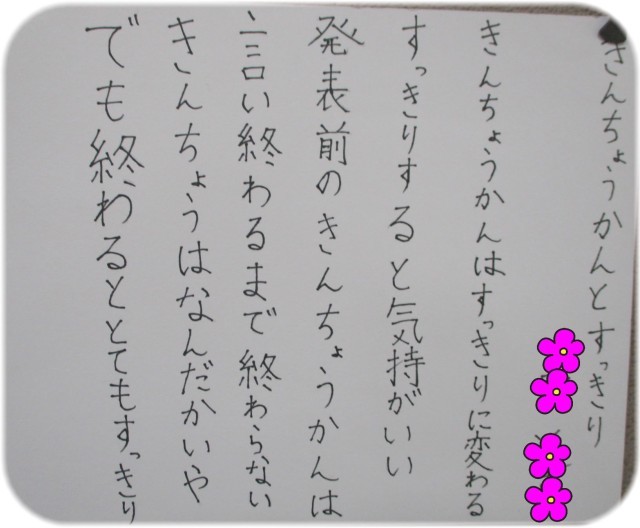 きんちょうかんとすっきり
きんちょうかんはすっきりに変わる
すっきりすると気持がいい
発表前のきんちょうかんは
言い終わるまで終わらない
きんちょうはなんだかいや
でも終わるととてもすっきり